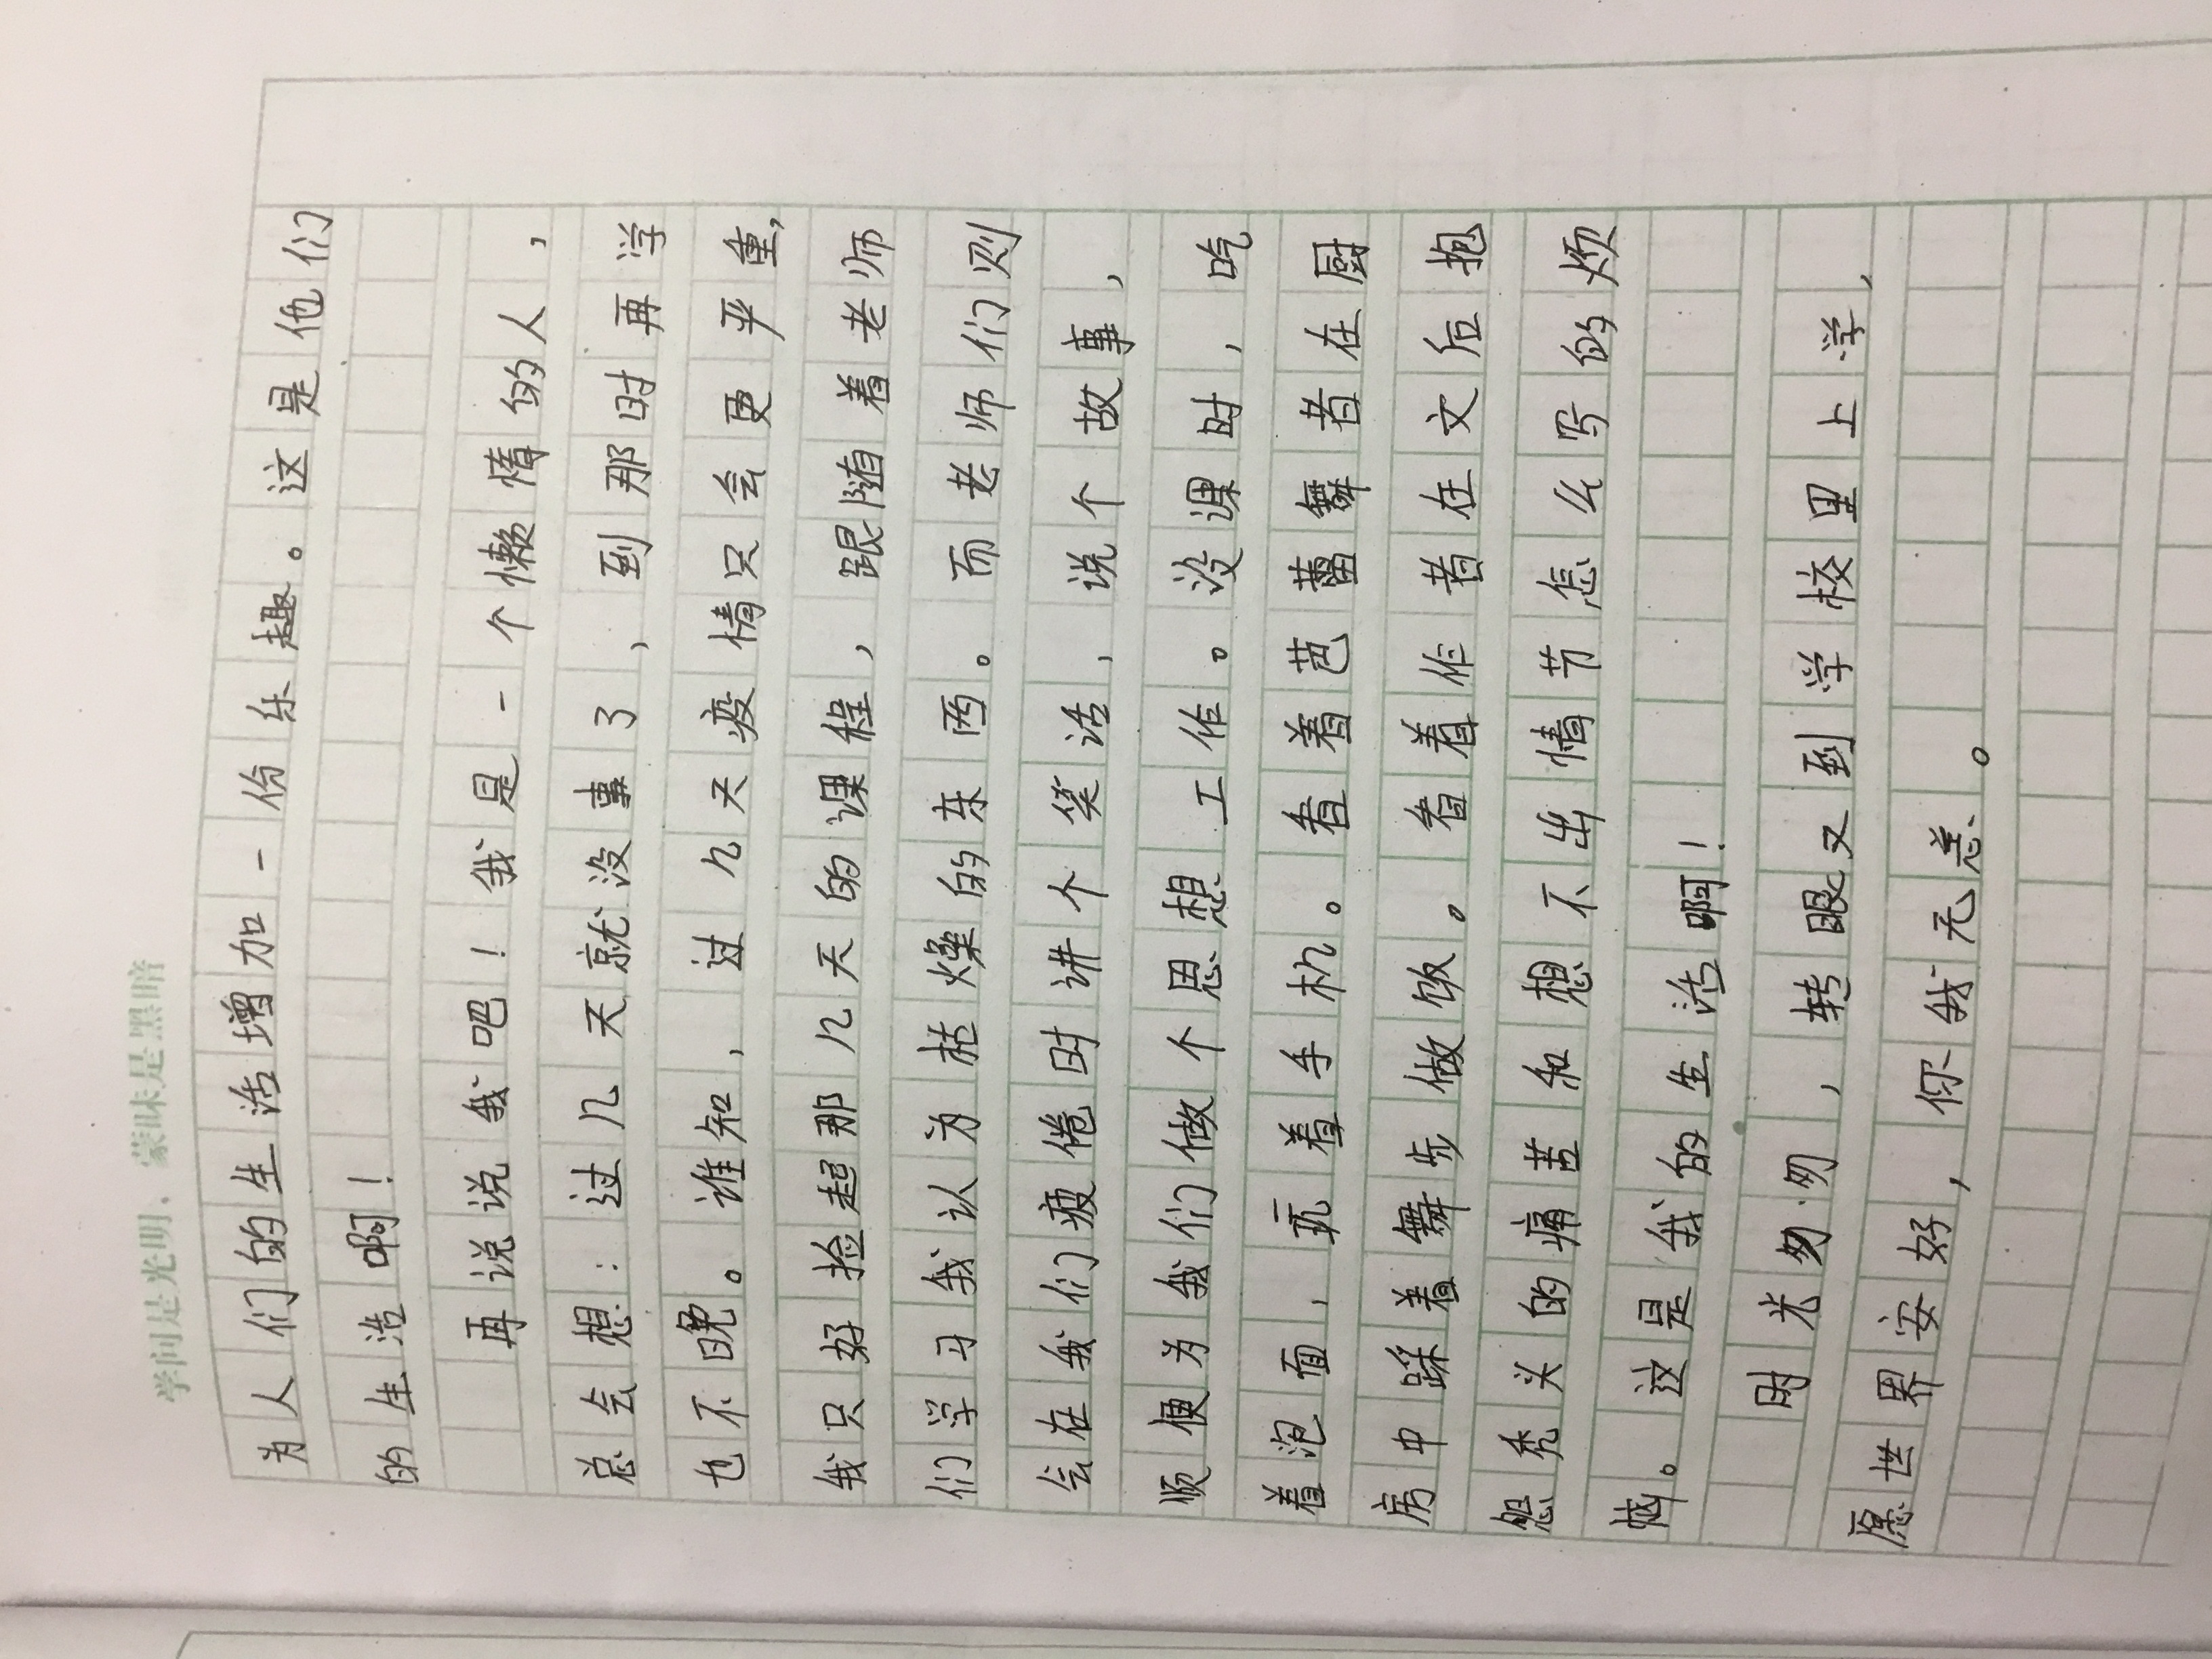 学问是光明，蒙昧是黑暗
为人们的生活增加一份乐趣。这是他们
的生活啊！
再说说我吧！我是一个懒惰的人，
总会想：过几天就没事了，到那时再学
也不晚。谁知，过几天疫情只会更严重，
我只好捡起那几天的课程，跟随着老师
们学习我认为枯燥的东西。而老师们则
会在我们疲倦时讲个笑话，说个故事，
顺便为我们做个思想工作。没课时，吃
着泡面，玩着手机。看着芭蕾舞者在厨
房中踩着舞步做饭。看着作者在文后抱
怨秃头的痛苦和想不出情节怎么写的烦
恼。这是我的生活啊！
时光匆匆，转眼又到学校里上学，
愿世界安好，你我无恙。